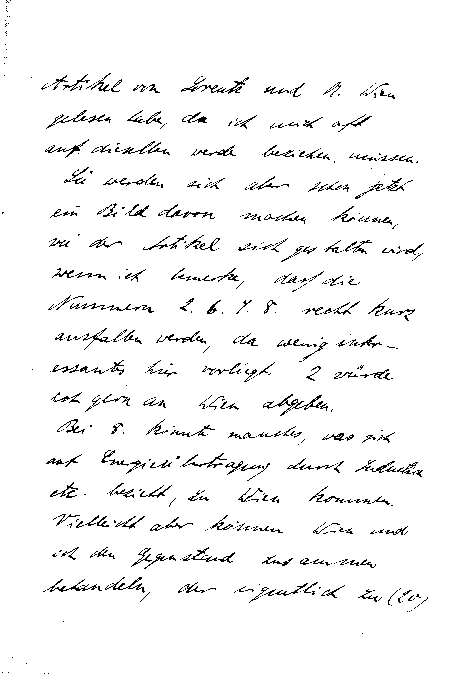 Artikel von Lorentz und W. Wien
gelesen habe, da ich mich oft
auf dieselben werde beziehen müssen.
Sie werden sich aber schon jetzt
ein Bild davon machen können,
wie der Artikel sich gestalten wird,
wenn ich bemerke, daß die
Nummern 2. 6. 7. 8. recht kurz
ausfallen werden, da wenig inter-
essantes hier vorliegt. 2 würde
ich gern an Wien abgeben.
Bei 8. könnte manches, was sich
auf Energieübertragung durch Induction
etc. bezieht, zu Wien kommen.
Vielleicht aber können Wien und
ich den Gegenstand zusammen
behandeln, der eigentlich zu (20)